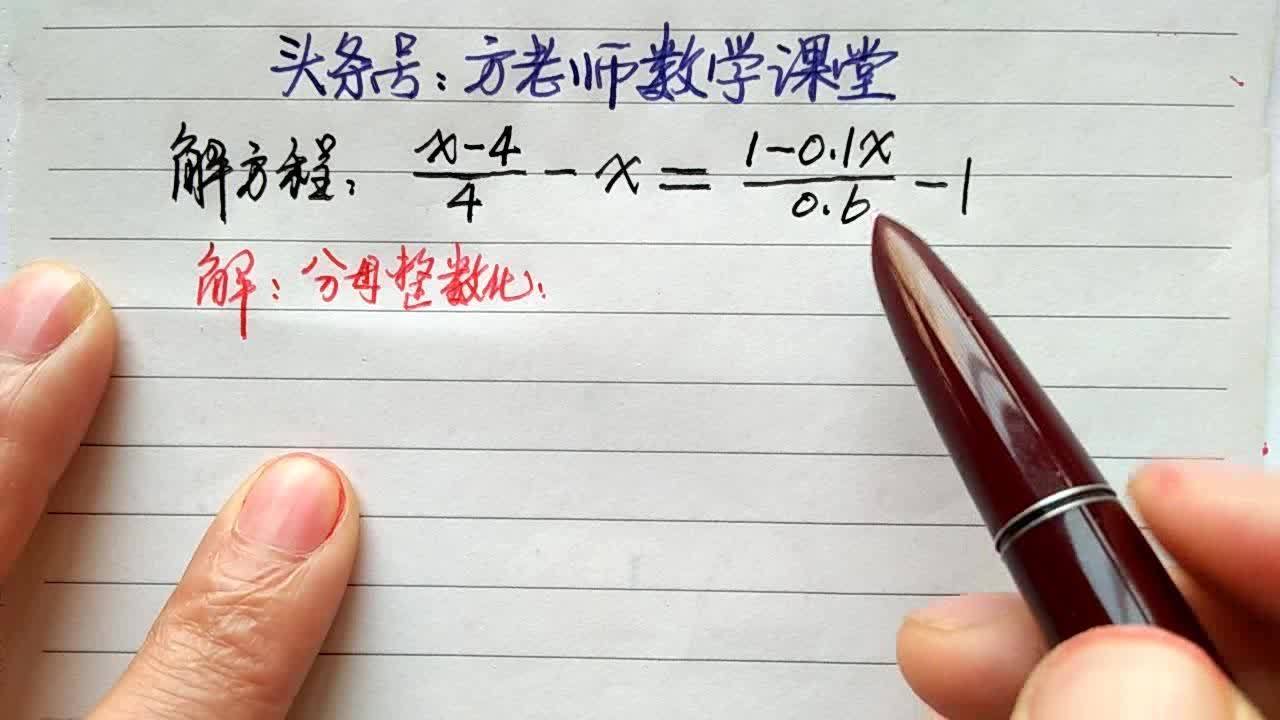 头条号：方老师数学课堂
解方程： \frac{x-4}{4} - x = \frac{1-0.1x}{0.6} - 1
解：分母整数化：